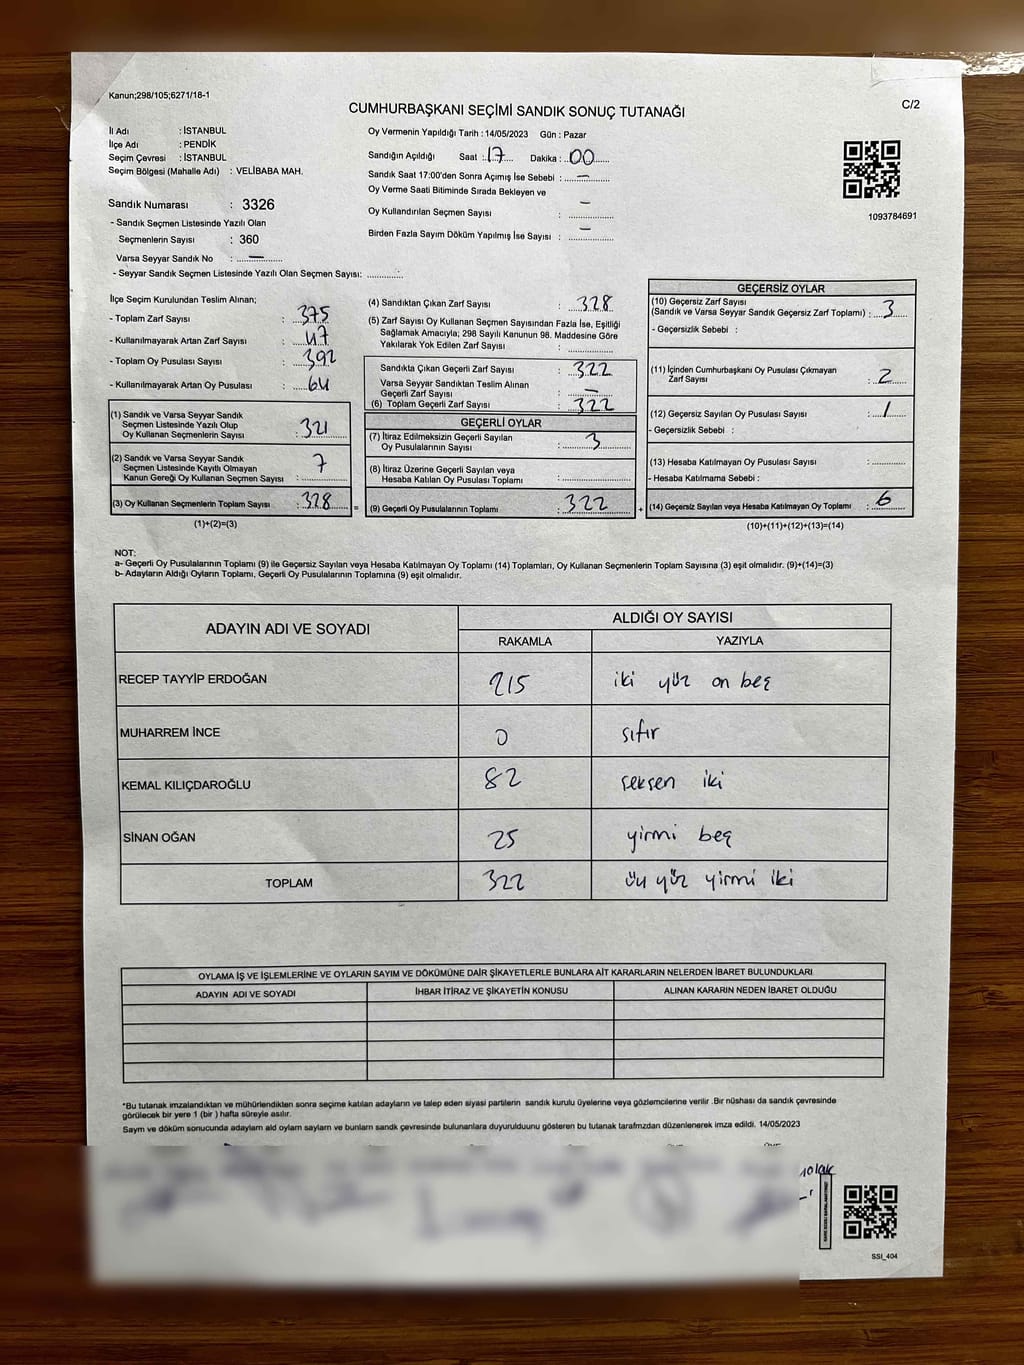 Kanun;298/105;6271/18-1
CUMHURBAŞKANI SEÇİMİ SANDIK SONUÇ TUTANAĞI
C/2
İl Adı : İSTANBUL
İlçe Adı : PENDİK
Seçim Çevresi : İSTANBUL
Seçim Bölgesi (Mahalle Adı) : VELİBABA MAH.
Sandık Numarası : 3326
- Sandık Seçmen Listesinde Yazılı Olan
Seçmenlerin Sayısı : 360
Varsa Seyyar Sandık No : —
- Seyyar Sandık Seçmen Listesinde Yazılı Olan Seçmen Sayısı:
Oy Vermenin Yapıldığı Tarih : 14/05/2023 Gün : Pazar
Sandığın Açıldığı Saat : 17 Dakika : 00
Sandık Saat 17:00'den Sonra Açımış İse Sebebi : —
Oy Verme Saati Bitiminde Sırada Bekleyen ve
Oy Kullandırılan Seçmen Sayısı : —
Birden Fazla Sayım Döküm Yapılmış İse Sayısı : —
1093784691
İlçe Seçim Kurulundan Teslim Alınan;
- Toplam Zarf Sayısı : 375
- Kullanılmayarak Artan Zarf Sayısı : 47
- Toplam Oy Pusulası Sayısı : 392
- Kullanılmayarak Artan Oy Pusulası : 64
(1) Sandık ve Varsa Seyyar Sandık
Seçmen Listesinde Yazılı Olup
Oy Kullanan Seçmenlerin Sayısı : 321
(2) Sandık ve Varsa Seyyar Sandık
Seçmen Listesinde Kayıtlı Olmayan
Kanun Gereği Oy Kullanan Seçmen Sayısı : 7
(3) Oy Kullanan Seçmenlerin Toplam Sayısı : 328 =
(1)+(2)=(3)
(4) Sandıktan Çıkan Zarf Sayısı : 328
(5) Zarf Sayısı Oy Kullanan Seçmen Sayısından Fazla İse, Eşitliği
Sağlamak Amacıyla; 298 Sayılı Kanunun 98. Maddesine Göre
Yakılarak Yok Edilen Zarf Sayısı :
Sandıkta Çıkan Geçerli Zarf Sayısı : 322
Varsa Seyyar Sandıktan Teslim Alınan
Geçerli Zarf Sayısı : —
(6) Toplam Geçerli Zarf Sayısı : 322
GEÇERLİ OYLAR
(7) İtiraz Edilmeksizin Geçerli Sayılan
Oy Pusulalarının Sayısı : 3
(8) İtiraz Üzerine Geçerli Sayılan veya
Hesaba Katılan Oy Pusulası Toplamı :
(9) Geçerli Oy Pusulalarının Toplamı : 322 +
GEÇERSİZ OYLAR
(10) Geçersiz Zarf Sayısı
(Sandık ve Varsa Seyyar Sandık Geçersiz Zarf Toplamı) : 3
- Geçersizlik Sebebi :
(11) İçinden Cumhurbaşkanı Oy Pusulası Çıkmayan
Zarf Sayısı : 2
(12) Geçersiz Sayılan Oy Pusulası Sayısı : 1
- Geçersizlik Sebebi :
(13) Hesaba Katılmayan Oy Pusulası Sayısı :
- Hesaba Katılmama Sebebi :
(14) Geçersiz Sayılan veya Hesaba Katılmayan Oy Toplamı : 6
(10)+(11)+(12)+(13)=(14)
NOT:
a- Geçerli Oy Pusulalarının Toplamı (9) ile Geçersiz Sayılan veya Hesaba Katılmayan Oy Toplamı (14) Toplamları, Oy Kullanan Seçmenlerin Toplam Sayısına (3) eşit olmalıdır. (9)+(14)=(3)
b- Adayların Aldığı Oyların Toplamı, Geçerli Oy Pusulalarının Toplamına (9) eşit olmalıdır.
ADAYIN ADI VE SOYADI ALDIĞI OY SAYISI
RAKAMLA YAZIYLA
RECEP TAYYİP ERDOĞAN 215 iki yüz on beş
MUHARREM İNCE 0 sıfır
KEMAL KILIÇDAROĞLU 82 seksen iki
SİNAN OĞAN 25 yirmi beş
TOPLAM 322 üç yüz yirmi iki
OYLAMA İŞ VE İŞLEMLERİNE VE OYLARIN SAYIM VE DÖKÜMÜNE DAİR ŞİKAYETLERLE BUNLARA AİT KARARLARIN NELERDEN İBARET BULUNDUKLARI
ADAYIN ADI VE SOYADI İHBAR İTİRAZ VE ŞİKAYETİN KONUSU ALINAN KARARIN NEDEN İBARET OLDUĞU
*Bu tutanak imzalandıktan ve mühürlendikten sonra seçime katılan adayların ve talep eden siyasi partilerin sandık kurulu üyelerine veya gözlemcilerine verilir .Bir nüshası da sandık çevresinde
görülecek bir yere 1 (bir ) hafta süreyle asılır.
Sayım ve döküm sonucunda adayların ald oyların sayların ve bunların sandk çevresinde bulunanlara duyurulduunu gösteren bu tutanak tarafmzdan düzenlenerek imza edildi. 14/05/2023
SSI_404